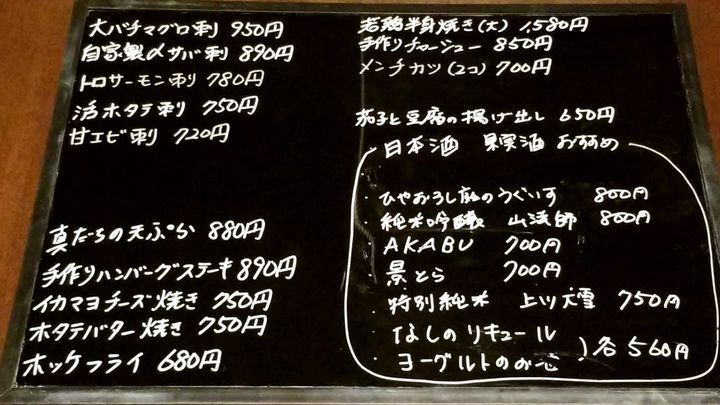 大バチマグロ刺 950円
自家製〆サバ刺 890円
トロサーモン刺 780円
活ホタテ刺 750円
甘エビ刺 720円
真だちの天ぷら 880円
手作りハンバーグステーキ 890円
イカマヨチーズ焼き 750円
ホタテバター焼き 750円
ホッケフライ 680円
若鶏半身焼き(大) 1,580円
手作りチャーシュー 850円
メンチカツ(2コ) 700円
茄子と豆腐の揚げ出し 650円
日本酒 果実酒 おすすめ
・ひやおろし庭のうぐいす 800円
・純米吟醸 山法師 800円
・AKABU 700円
・景とら 700円
・特別純米 上川大雪 750円
・なしのリキュール
・ヨーグルトのお酒 )各560円